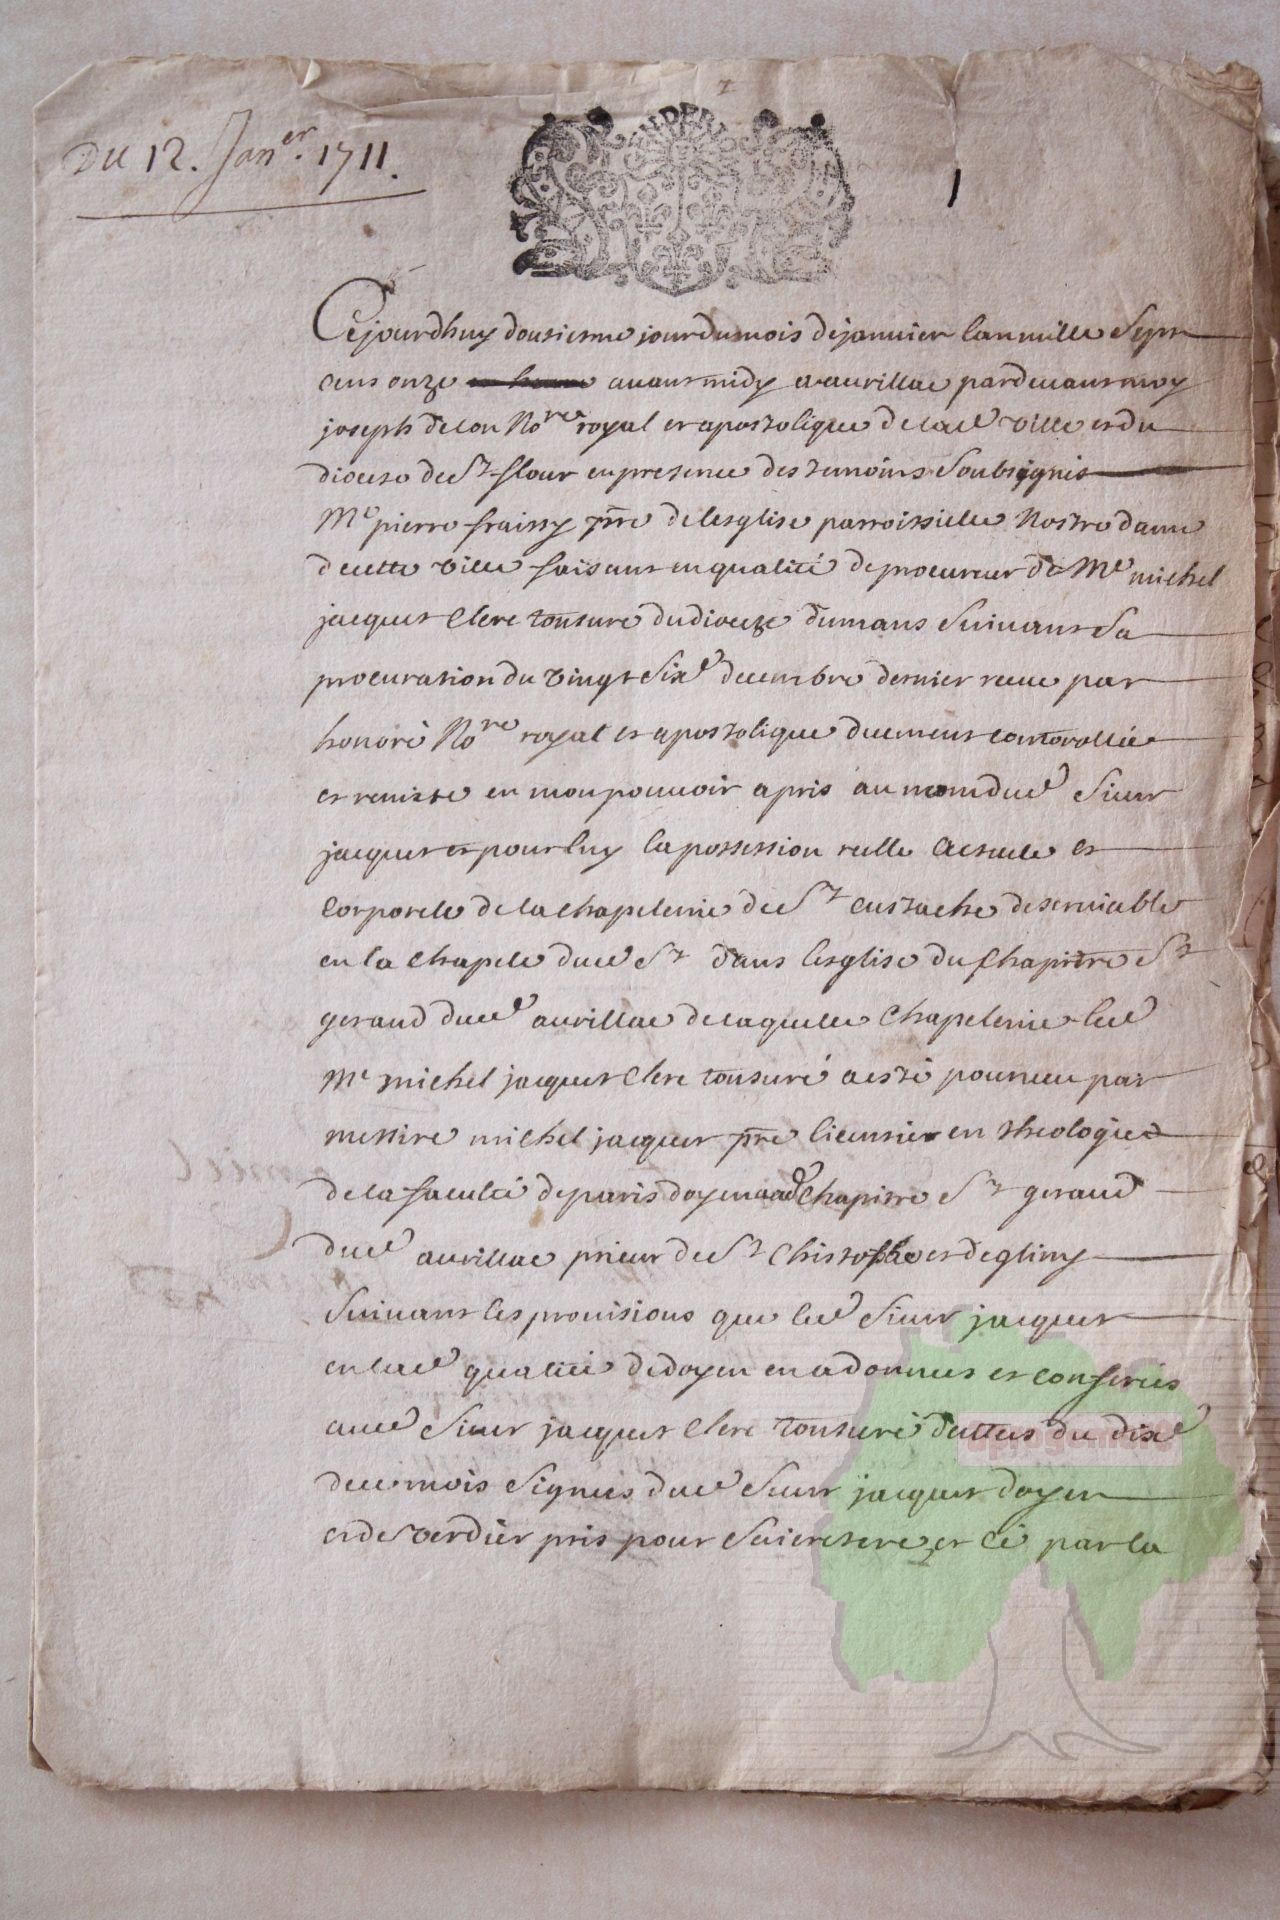 Du 12. Jan.er 1711.
1
Cejourdhuy dousiesme jour du mois de janvier lan mille Sept
cens onze avant midy a aurillac pardevant moy
joseph delon No.re royal et apostolique de lad ville et du
dioceze de St flour en presence des temoins Soubsignes
Me pierre fraissy ptre de lesglise parroissielle Nostre dame
de cette ville faisant en qualité de procureur de Me michel
jacquet Clerc tonsuré du dioceze du mans Suivant Sa
procuration du vingt Sixe decembre dernier receue par
honoré No.re royal et apostolique deuement controllée
et remise en mon pouvoir a pris au nom dud Sieur
jacquet et pour luy la possession reelle actuelle et
Corporele de la chapelenie de St eustache deserviable
en la chapele dud St dans lesglise du Chapitre St
geraud dud aurillac de laquelle Chapelenie led
Me michel jacquet Clerc tonsuré a esté pourveu par
messire michel jacquet ptre licensier en theologie
de la faculté de paris doyen aud Chapitre St geraud
dud aurillac prieur de St Christophe et de gliny
Suivant les provisions que led Sieur jacquet
en lad qualité de doyen en a donnees et conferées
aud Sieur jacquet Clerc tonsuré du dixe
de ce mois Signées dud Sieur jacquet doyen
et de verdier pris pour Secretere et ce par la
aprogemere